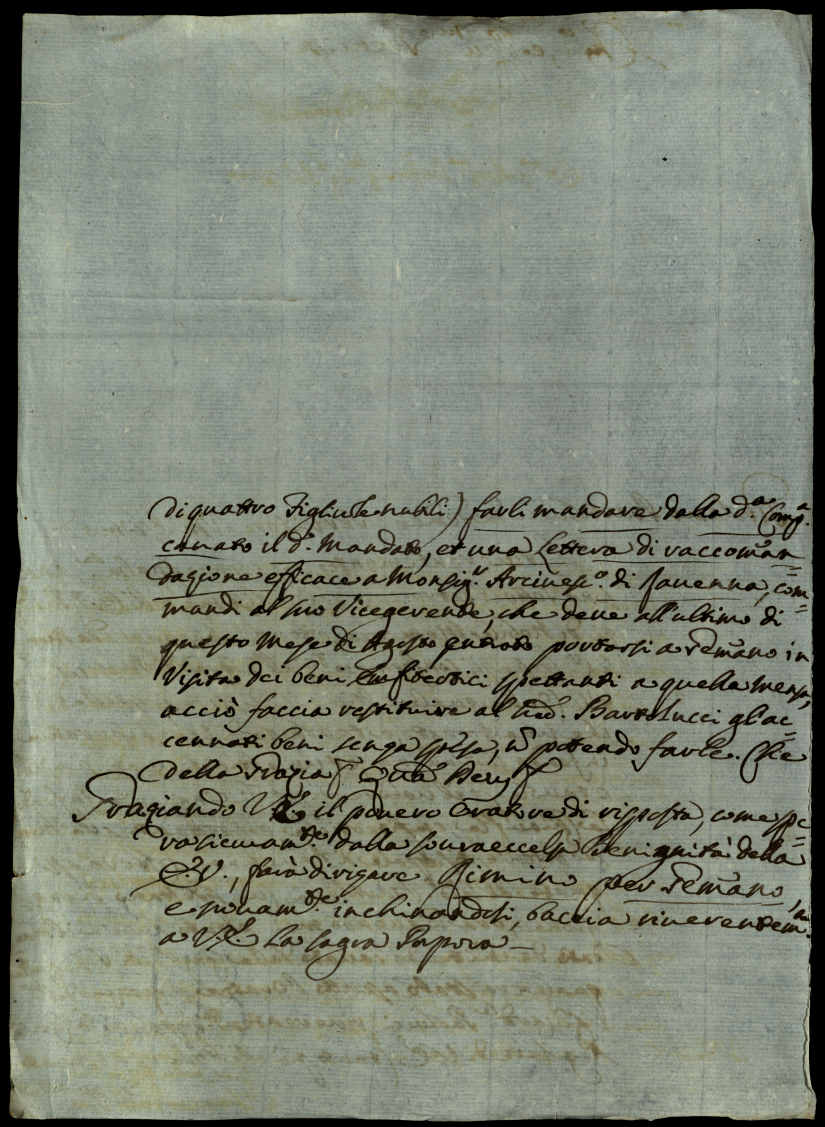 di quattro Figliuole nubili) farli mandare dalla d.ª Comp.ª
cenato il d.º Mandato, et una Lettera di raccoman=
dazione efficace a Monsig.r Arcivesc.º di Ravenna, com=
mandi al suo Vicegerende, che deve all'ultimo di
questo Mese di Agosto portarsi a Temano in
Visita dei beni Enfiteotici spettanti a quella Mensa,
acciò faccia restituire al Bartolucci gl'ac=
cennati beni senza spesa, ñ potendo farle. Che
della Grazia
Graziando V. E. il povero Oratore di risposta, come spe=
ra sicuram.te dalla souraeccelsa Benignità della
E. V., farà dirigere Rimino per Temano,
e novam.te inchinandosi, baccia riverentem.e
a V. E. la sagra Porpora